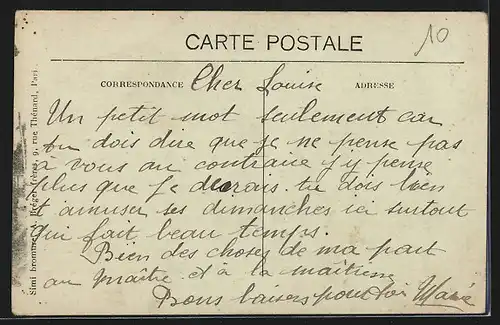 10
CARTE POSTALE
CORRESPONDANCE
ADRESSE
Cher Louise
Un petit mot seulement car
tu dois dire que je ne pense pas
à vous au contraire j'y pense
plus que je devrais. tu dois bien
t'amuser ses dimanches ici surtout
qui fait beau temps.
Bien des choses de ma part
au maître et à la maitresse
Bons baisers pour toi Marie
Simi bromure A. Breger frères, 9, rue Thénard, Paris